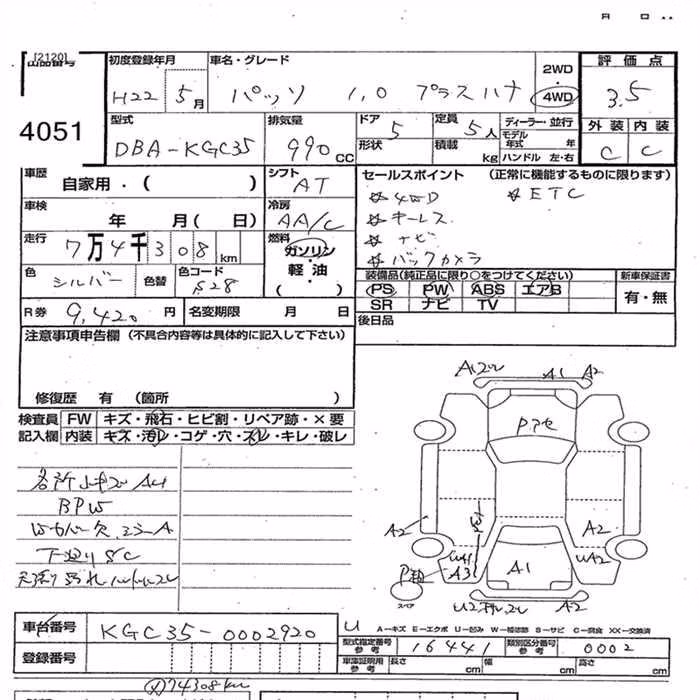 月 日
[2120]
初度登録年月
車名・グレード
2WD
・
4WD
評価点
H22 5月
パッソ 1,0 プラスハナ
3.5
4051
型式
排気量
ドア
定員
ディーラー・並行
外装 内装
DBA-KGC35
990 CC
5
5人
モデル年式 年
形状
積載 kg
ハンドル 左・右
C C
車歴
自家用・( )
シフト
AT
セールスポイント (正常に機能するものに限ります)
☆4WD ☆ETC
☆キーレス
☆ナビ
☆バックカメラ
車検
年 月( 日)
冷房
AA/C
走行
7万4千308km
燃料
ガソリン
・
軽油
( ・ )
色
シルバー
色替
色コード
S28
装備品(純正品に限り○をつけてください)
新車保証書
PS PW ABS エアB
有・無
SR ナビ TV
R券
9,420円
名変期限 月 日
後日品
注意事項申告欄 (不具合内容等は具体的に記入して下さい)
修復歴 有 (箇所 )
検査員 FW キズ・飛石・ヒビ割・リペア跡・×要
記入欄 内装 キズ・汚レ・コゲ・穴・スレ・キレ・破レ
A1 A2
Pアセ
各所 A4
BPW
下廻りSC
A2
A2
UA2
A3
A1
スペア
A2
車台番号
KGC35-0002920
U A-キズ E-エクボ U-凹み W-補修跡 S-サビ C-腐食 XX-交換済
型式指定番号
参考
16441
類別区分番号
参考
0002
登録番号
車庫証明用
参考
長さ cm 幅 cm 高さ cm
74308km